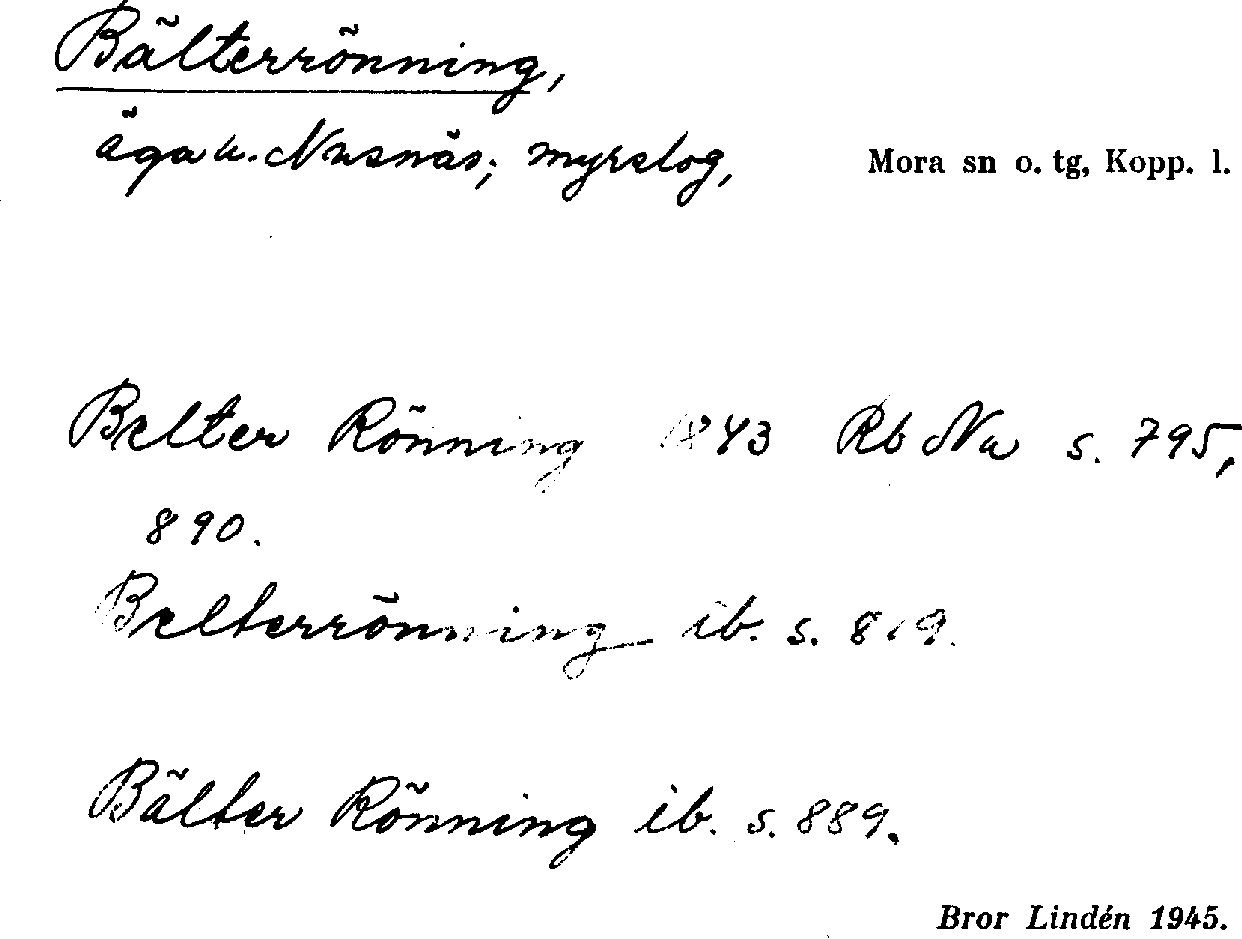 Bälterrönning,
äga u. Nusnäs; myrslog, Mora sn o. tg, Kopp. l.
Belter Rönning 1843 Rb Nu s. 795,
890.
Belterrönning ib. s. 819.
Bälter Rönning ib. s. 889.
Bror Lindén 1945.